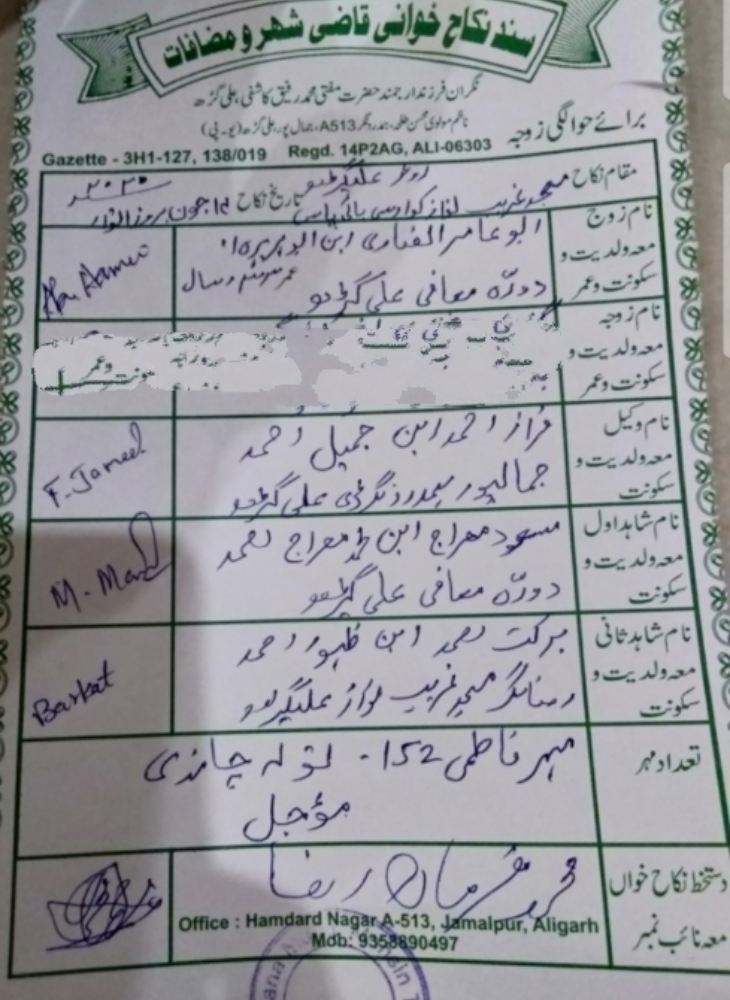 سند نکاح خوانی قاضی شہر و مضافات
نگران فرزندارجمند حضرت مفتی محمد رفیق کاشفی، علی گڑھ
ناظم مولوی محسن ہمدرد نگر A513، جمال پور، علی گڑھ (یو۔پی)
برائے حوالگی زوجہ
Gazette - 3H1-127, 138/019 Regd. 14P2AG, ALI-06303
مقام نکاح مسجد غریب نواز
تاریخ نکاح جون بروز اتوار
نام زوج
معہ ولدیت و
سکونت و عمر
ابو عامر انصاری ابن ابو
دورہ معافی علی گڑھ
عمر سال
Abu Aamer
نام زوجہ
معہ ولدیت و
سکونت و عمر
نام وکیل
معہ ولدیت و
سکونت
فراز احمد ابن جمیل احمد
جمالپور ہمدرد نگر ڈی علی گڑھ
F. Jameel
نام شاہد اول
معہ ولدیت و
سکونت
مسعود معراج ابن معراج احمد
دورہ معافی علی گڑھ
نام شاہد ثانی
معہ ولدیت و
سکونت
برکت احمد ابن ظہور احمد
مسجد غریب نواز علیگڑھ
Barkat
تعداد مہر
مہر فاطمی 152 تولہ چاندی
مؤجل
دستخط نکاح خواں
معہ نائب نمبر
محمد فرمان رضا
Office : Hamdard Nagar A-513, Jamalpur, Aligarh
Mob: 9358890497